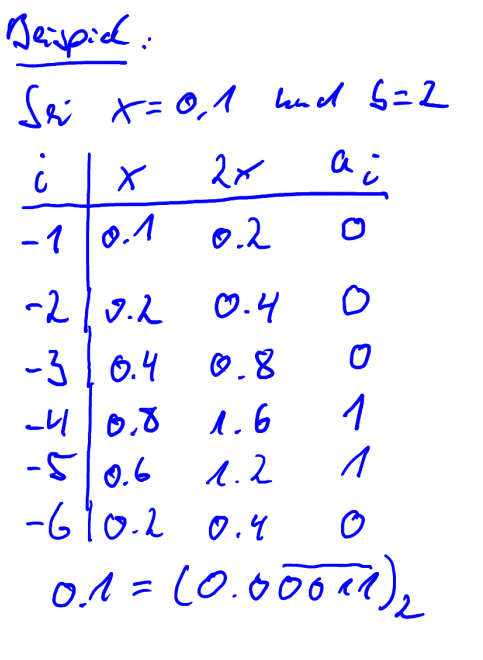 Beispiel:
Sei x=0,1 und b=2
i x 2x a_i
-1 0.1 0.2 0
-2 0.2 0.4 0
-3 0.4 0.8 0
-4 0.8 1.6 1
-5 0.6 1.2 1
-6 0.2 0.4 0
0.1 = (0.00̅0̅1̅1̅)₂